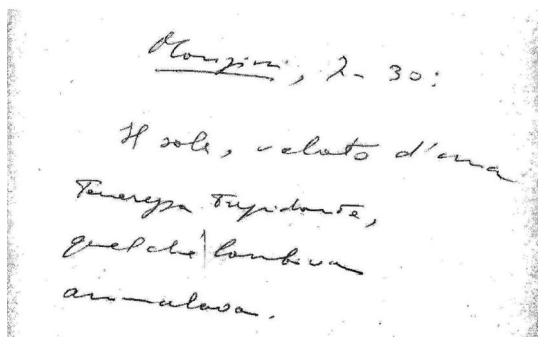 Monzini, 2-30:
Il sole, velato d'una
Tenerezza Trepidante,
quel che lambiva
ammalava.